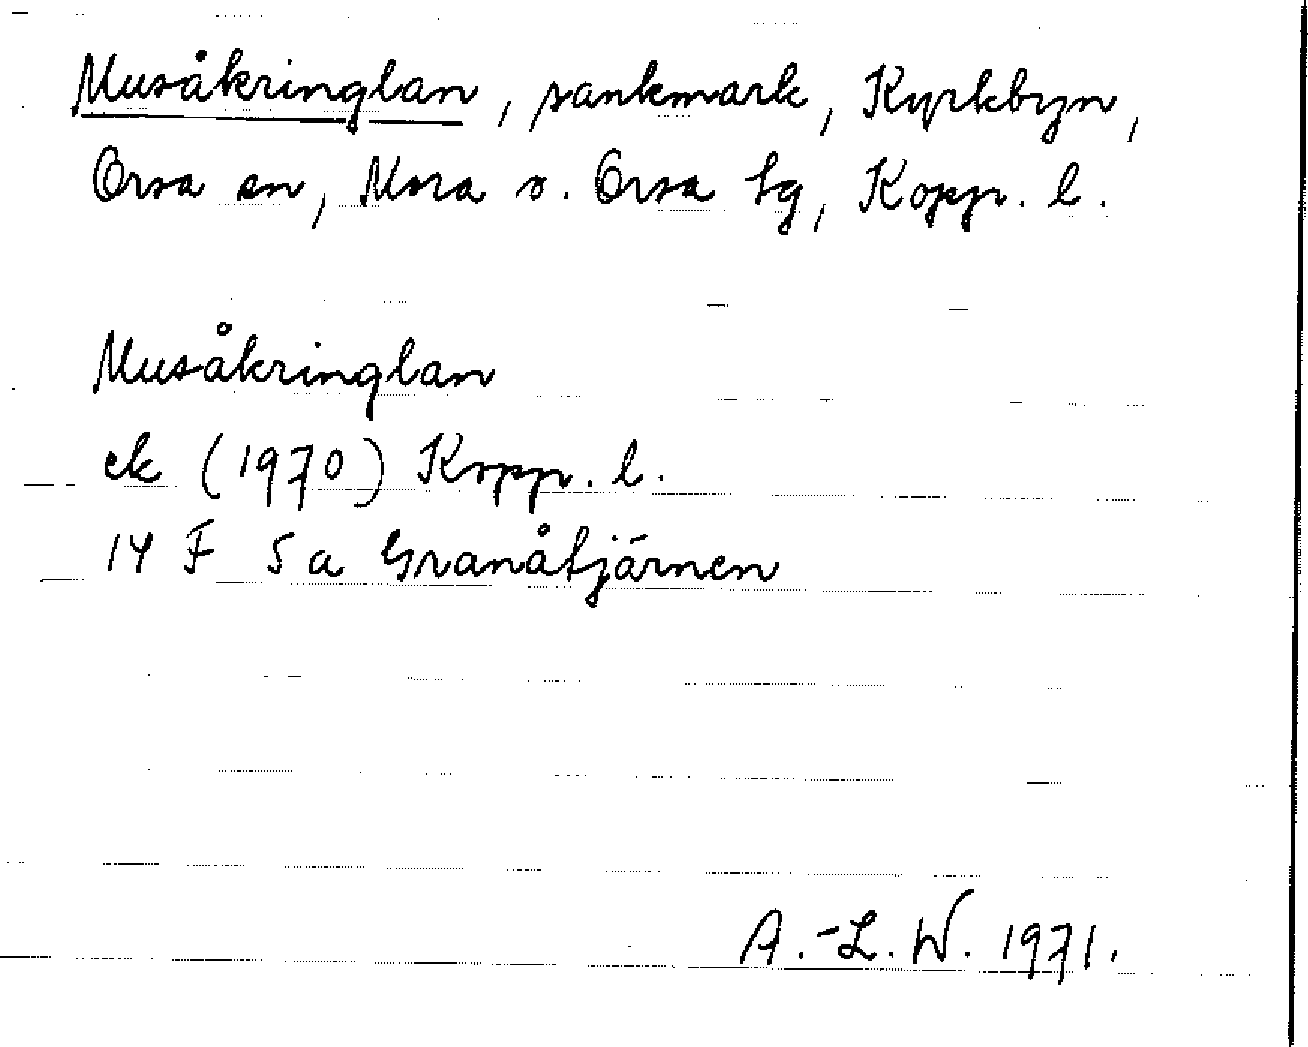 Musåkringlan, sankmark, Kyrkbyn,
Orsa sn, Mora o. Orsa tg, Kopp. l.
Musåkringlan
ek (1970) Kopp. l.
14 F 5 a Granåtjärnen
A.-L. W. 1971.